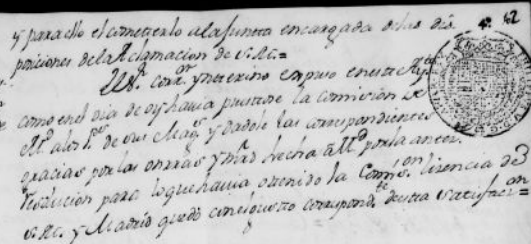 y para ello el cometterlo a la Junta encargada de las dis
posiciones de la Aclamacion de S. M.=
El Sr. Corr.or ynterino expuso en este Ayto.
como en el dia de oy havia pasado la comision de
M.d a los de sus Mag.s y dadole las correspondientes
gracias por las onrras y hecha a M.d por la anter.
resolucion para lo que havia obtenido la Comis.on lizencia de
S. M. y Madrid quedó con el gusto correspond.te de esta satisfacc.on=